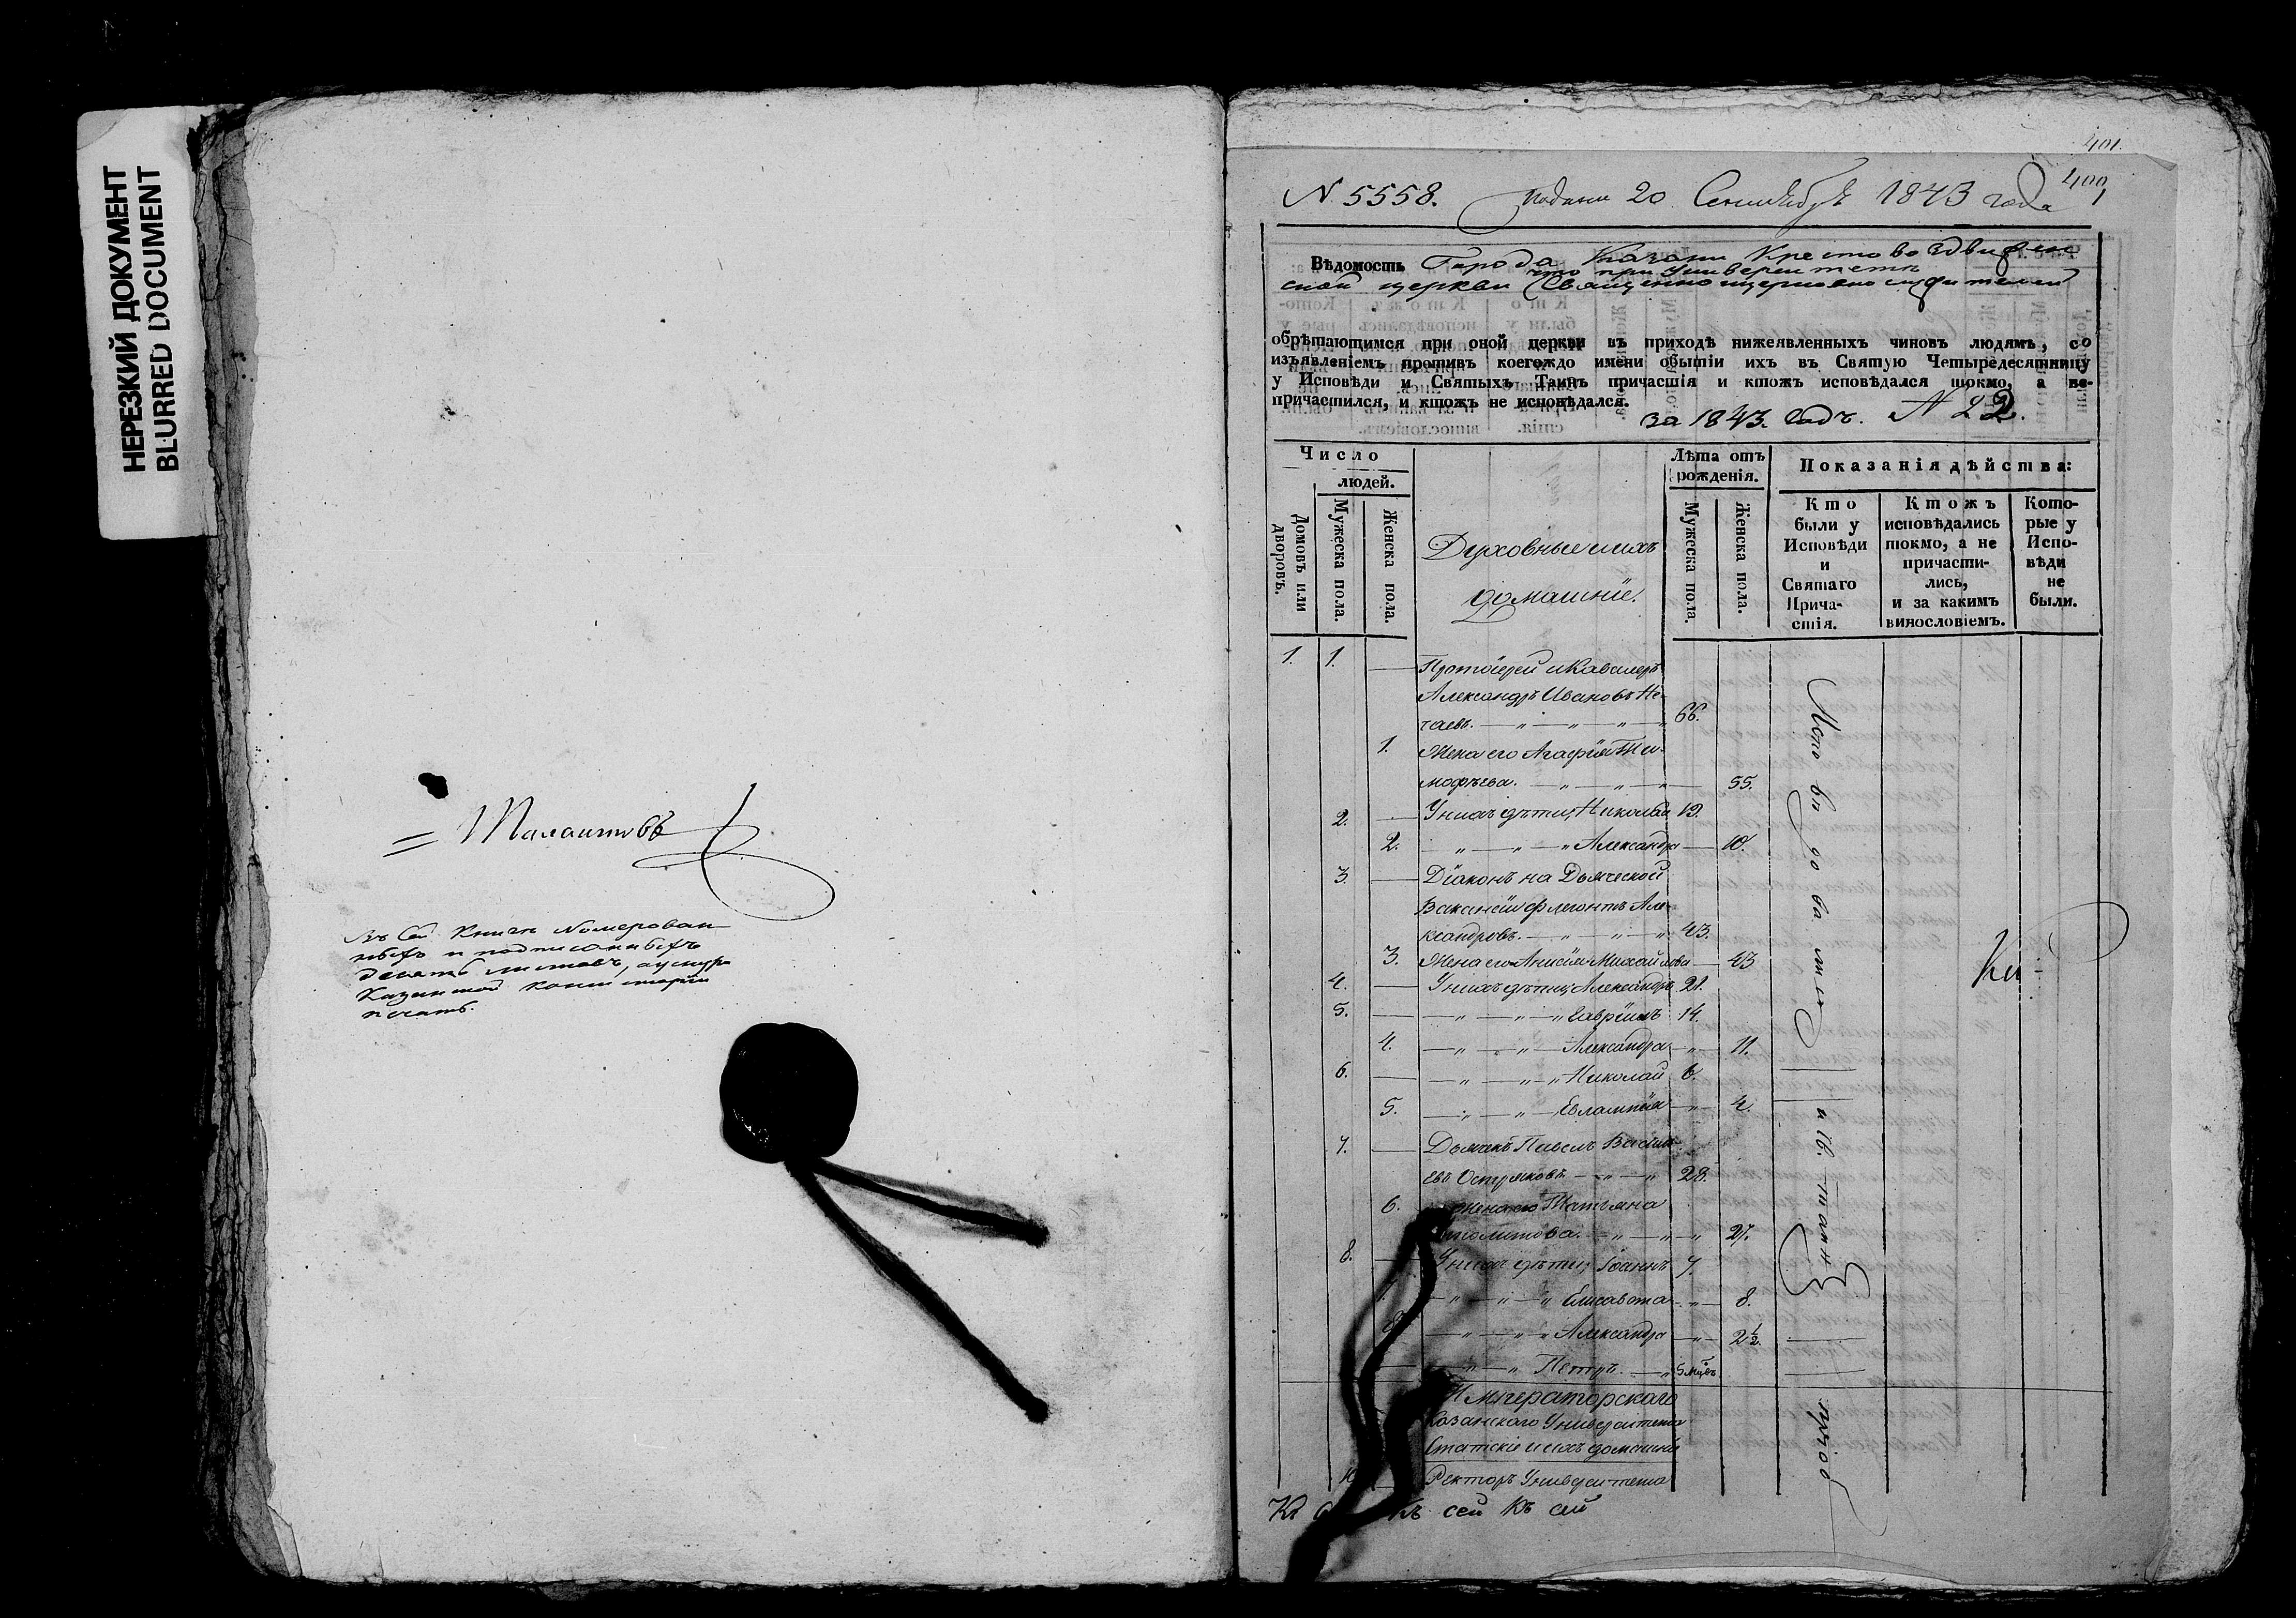 НЕРЕЗКИЙ ДОКУМЕНТ
BLURRED DOCUMENT
Талантовъ
Въ сей Книгѣ Номерован
ныхъ и подписанныхъ
девять листовъ, а у шнура
Казанской консисторіи
печать.
401.
400
N. 5558. Подана 20 Сентября 1843 года
Вѣдомость Города Казани Крестовоздвижен
ской церкви (что при Университетѣ) Священноцерковнослужителей
обрѣтающимся при оной церкви въ приходѣ нижеявленныхъ чиновъ людямъ, со
изъявленіемъ противъ коегождо имени обытіи ихъ въ Святую Четыредесятницу
у Исповѣди и Святыхъ Таинъ причастія и ктожъ исповѣдался токмо, а не-
причастился, и ктожъ не исповѣдался.
за 1843. Годъ. N 22.
Число
людей.
Домовъ или дворовъ.
Мужеска пола.
Женска пола.
Духовные и ихъ
домашніе.
Лѣта отъ
рожденія.
Мужеска пола.
Женска пола.
Показанія дѣйства:
Кто
были у
Исповѣди
и
Святаго
Прича-
стія.
Ктожъ
исповѣдались
токмо, а не
причасти-
лись,
и за какимъ
винословіемъ.
Кото-
рые у
Испо-
вѣди
не
были.
1. 1. Протоіерей и Кавалеръ
Александръ Ивановъ Не-
чаевъ. 66.
1. Жена его Агафія Ти-
мофѣева. 55.
2. У нихъ дѣти; Николай 13.
2. Александра 10.
3. Діаконъ на Дьяческой
Вакансіи Флегонтъ Але-
ксандровъ. 43.
3. Жена его Анисія Михайлова 43
4. У нихъ дѣти; Александръ 21.
5. Гавріилъ 14.
4. Александра 11.
6. Николай 6.
5. Евлампія 4.
7. Дьячекъ Павелъ Василь-
евъ Остряковъ 28.
6. Жена его Татьяна
27.
8. У нихъ дѣти; Іоаннъ 7.
Елисавета 8.
8 Александра 2½.
Петръ. 5 мцовъ
Императорскаго
Казанскаго Университета
Статскіе и ихъ домашніе
Ректоръ Университета
Исповѣдовались
и св. таинъ
пріоб
Къ сей Къ сей